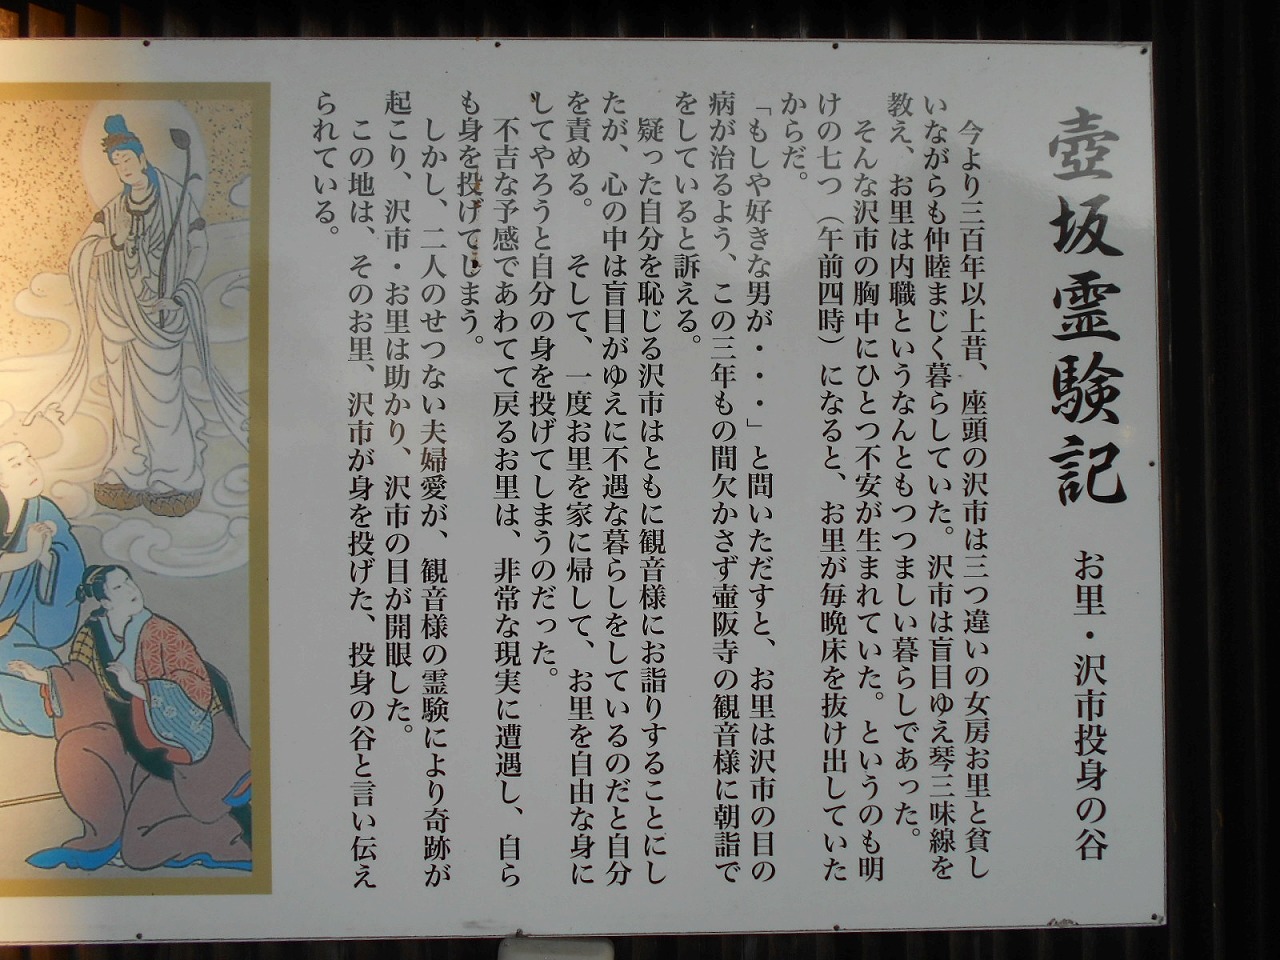 壺坂霊験記 お里・沢市投身の谷
今より三百年以上昔、座頭の沢市は三つ違いの女房お里と貧し
いながらも仲睦まじく暮らしていた。沢市は盲目ゆえ琴三味線を
教え、お里は内職というなんともつつましい暮らしであった。
そんな沢市の胸中にひとつ不安が生まれていた。というのも明
けの七つ（午前四時）になると、お里が毎晩床を抜け出していた
からだ。
「もしや好きな男が・・・」と問いただすと、お里は沢市の目の
病が治るよう、この三年もの間欠かさず壷阪寺の観音様に朝詣で
をしていると訴える。
疑った自分を恥じる沢市はともに観音様にお詣りすることにし
たが、心の中は盲目がゆえに不遇な暮らしをしているのだと自分
を責める。 そして、一度お里を家に帰して、お里を自由な身に
してやろうと自分の身を投げてしまうのだった。
不吉な予感であわてて戻るお里は、非常な現実に遭遇し、自ら
も身を投げてしまう。
しかし、二人のせつない夫婦愛が、観音様の霊験により奇跡が
起こり、沢市・お里は助かり、沢市の目が開眼した。
この地は、そのお里、沢市が身を投げた、投身の谷と言い伝え
られている。